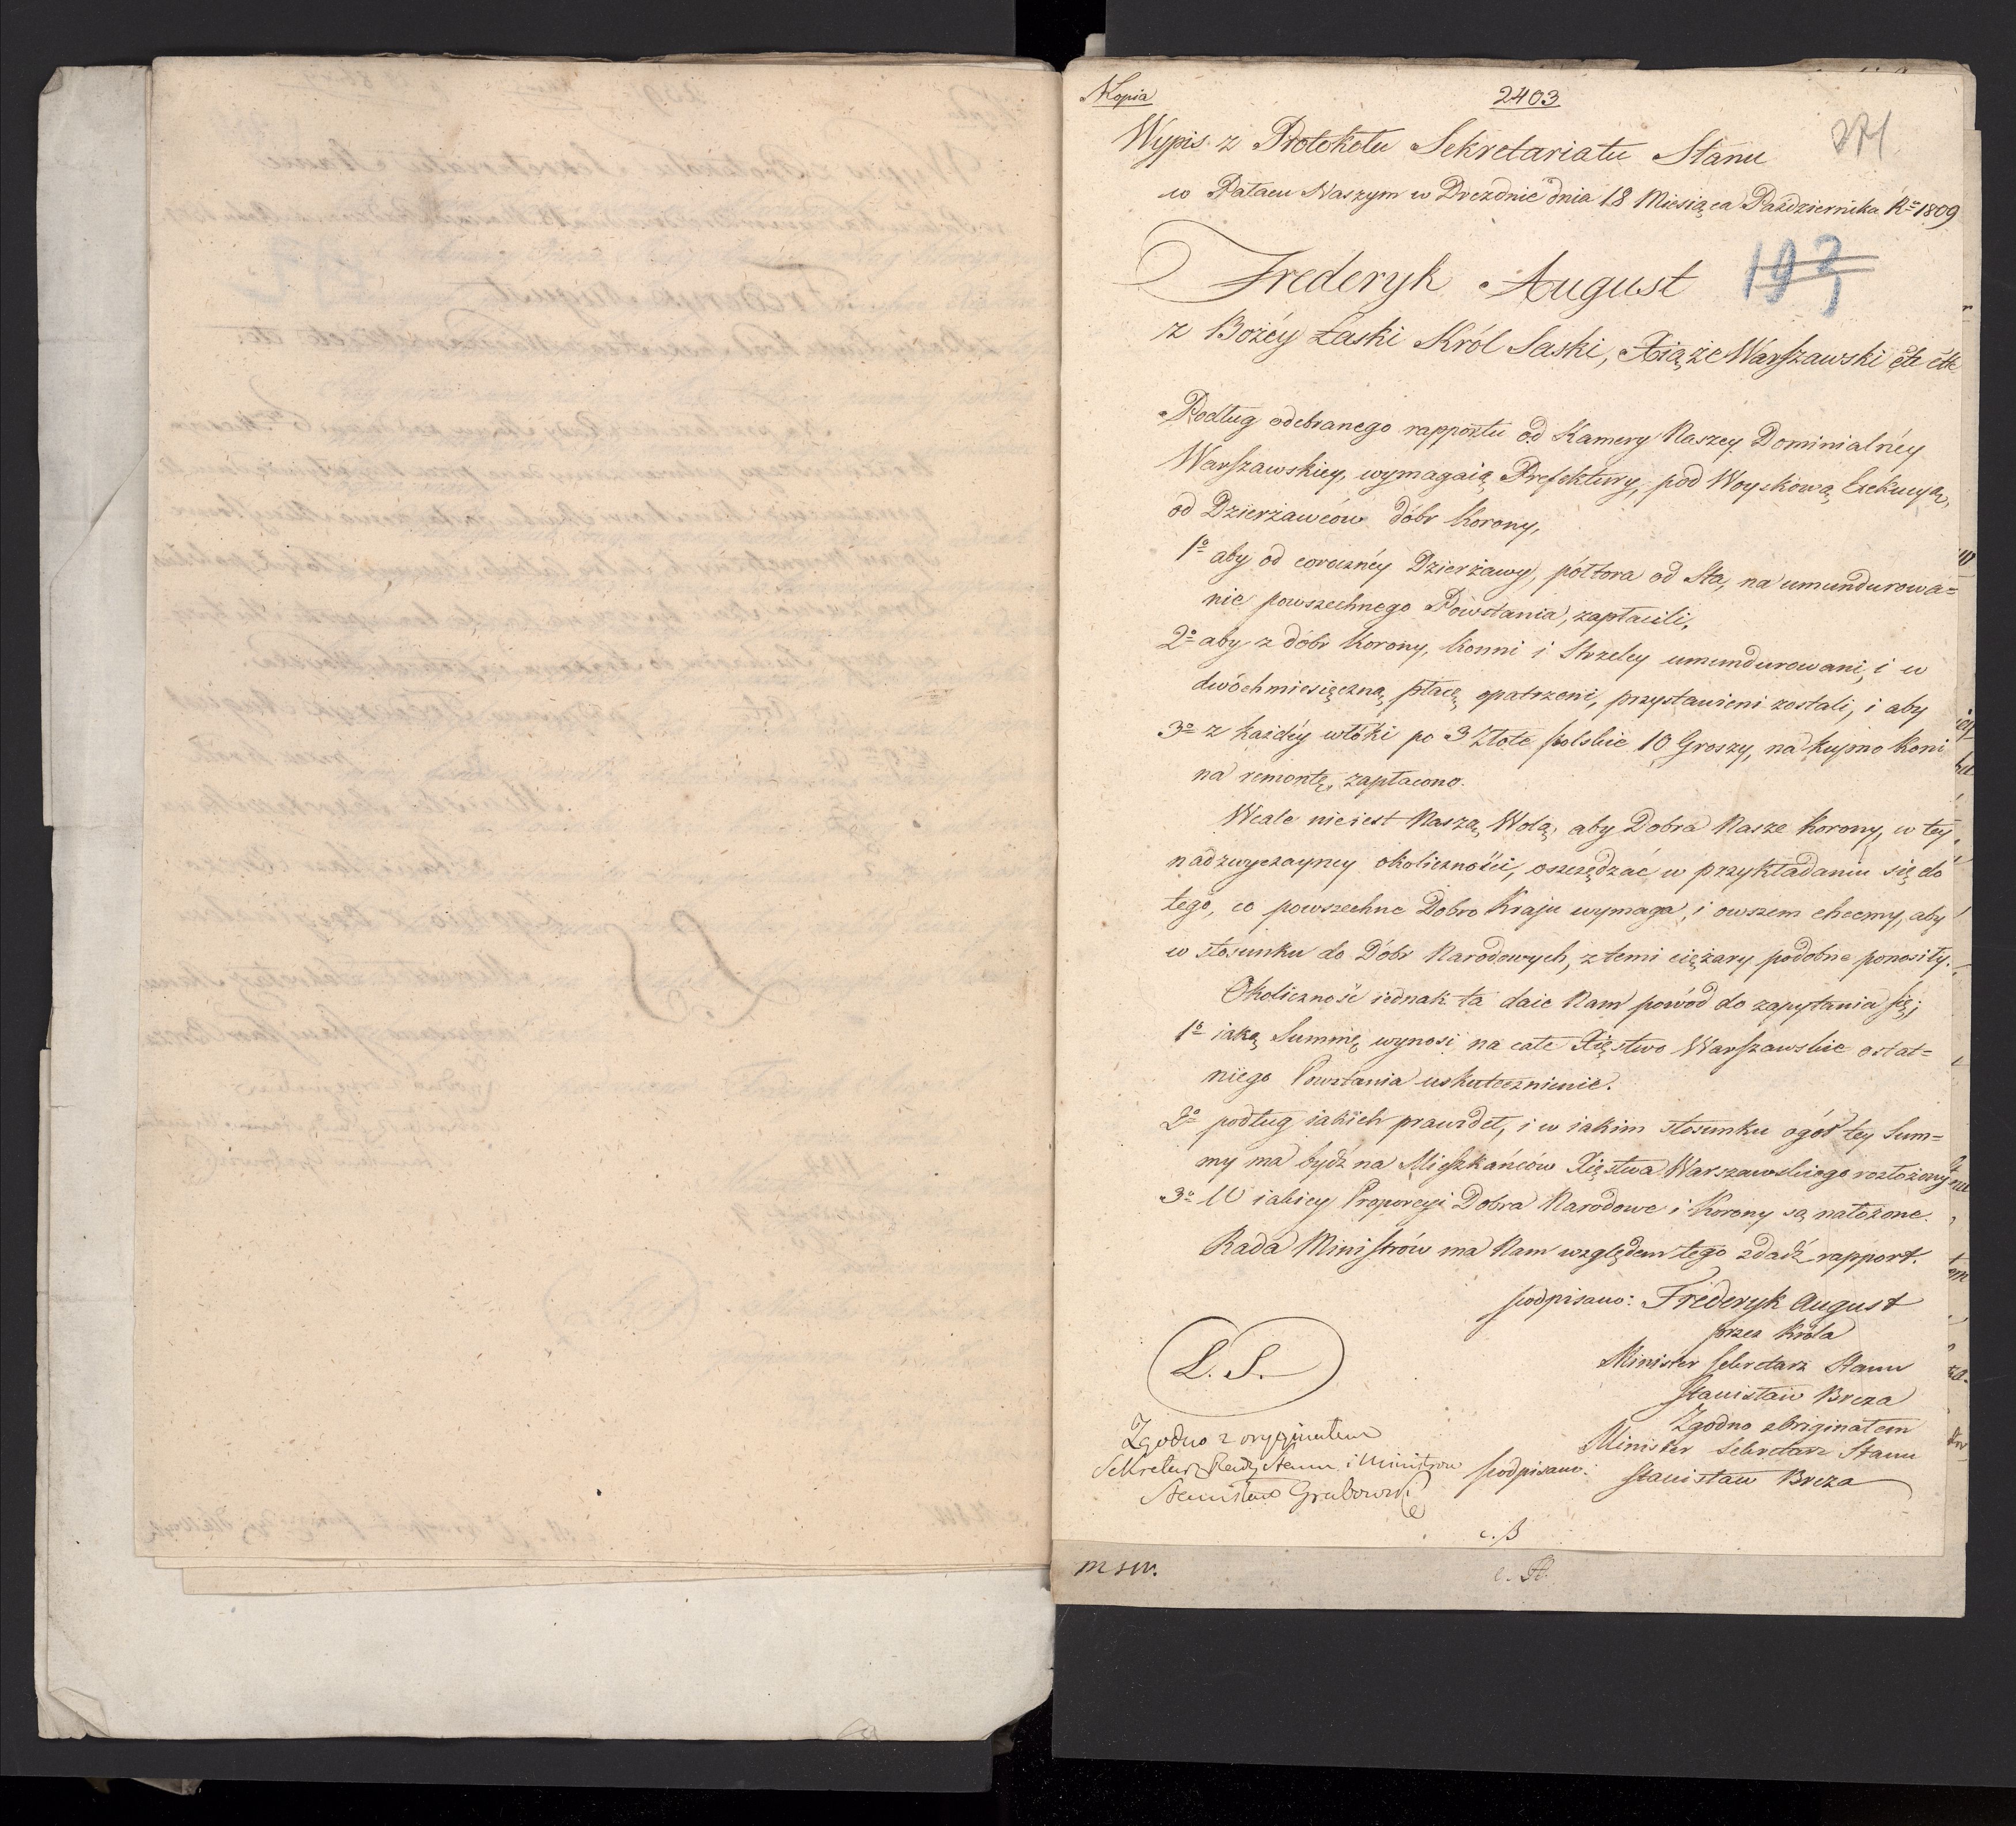 Kopia
2403
271
Wypis z Protokołu Sekretariatu Stanu
w Pałacu Naszym w Dreznie dnia 18 Miesiąca Października Rº 1809
193
Frederyk August
z Bożéy Łaski Król Saski, Xiąże Warszawski etc etc
Podług odebranego rapportu od Kamery Naszey Dominialnéy
Warszawskiey, wymagaią Prefektury, pod Woyskową Exekucyą,
od Dzierżawców dóbr Korony,
1º aby od corocznéy Dzierżawy, półtora od Sta, na umundurowa=
nie powszechnego Powstania, zapłacili,
2º aby z dóbr Korony, konni i Strzelcy umundurowani, i w
dwóchmiesięczną płacę opatrzeni, przystawieni zostali, i aby
3º z każdéy włóki po 3 Złote polskie 10 Groszy, na kupno koni
na remontę, zapłacono.
Wcale nieiest Naszą Wolą, aby Dobra Nasze Korony, w tey
nadzwyczayney okoliczności, oszczędzać w przykładaniu się do
tego, co powszechne Dobro Kraju wymaga, i owszem chcemy, aby
w stosunku do Dóbr Narodowych, z temi ciężary podobne ponosiły.
Okoliczność iednak ta daie Nam powód do zapytania się;
1º iaką Summę wynosi na całe Xięstwo Warszawskie ostat=
niego Powstania uskutecznienie.
2º podług iakich prawideł, i w iakim stosunku ogół tey Sum=
my ma bydź na Mieszkańców Xięstwa Warszawskiego rozłożony
3º W iakiey Proporcyi Dobra Narodowe i Korony są nałożone.
Rada Ministrów ma Nam względem tego zdadź rapport.
podpisano: Fréderyk August
przez Króla
Minister Sekretarz Stanu
Stanisław Breza
L. S.
Zgodno z Originałem
Minister Sekretarz Stanu
podpisano: Stanisław Breza
Zgodno z oryginałem
Sekretarz Rady Stanu i Ministrów
Stanisław Grabowski
c. B
msw.